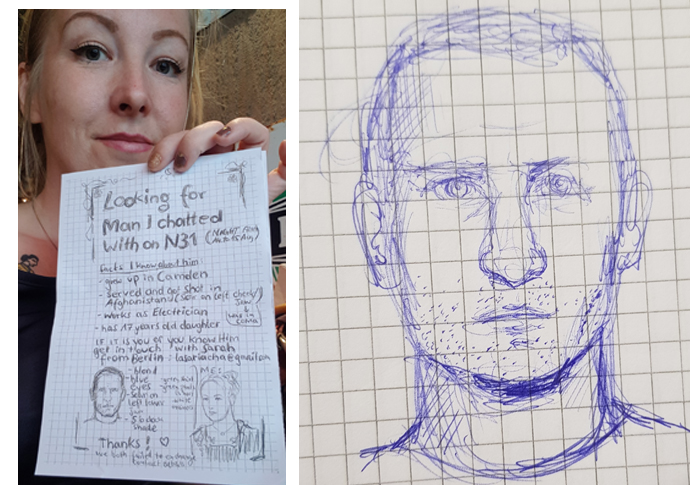 Looking for
Man I chatted
with on N31
facts I know about him
- grew up in Camden
- served and got shot in
Afghanistan (scar on left chest)
- works as Electrician
- has 15 years old daughter
was in
coma
IF it is you or you know Him
get in touch with Sarah
from Berlin:
- blond
- blue
eyes
- scar on
left
- 5 o clock
shade
ME:
Thanks! ♡
we both failed to exchange